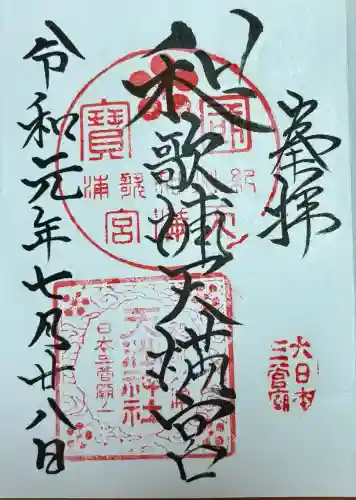 奉拝
和歌浦天満宮
令和元年七月廿八日
大日本
三菅廟
天満神社
日本三菅廟一